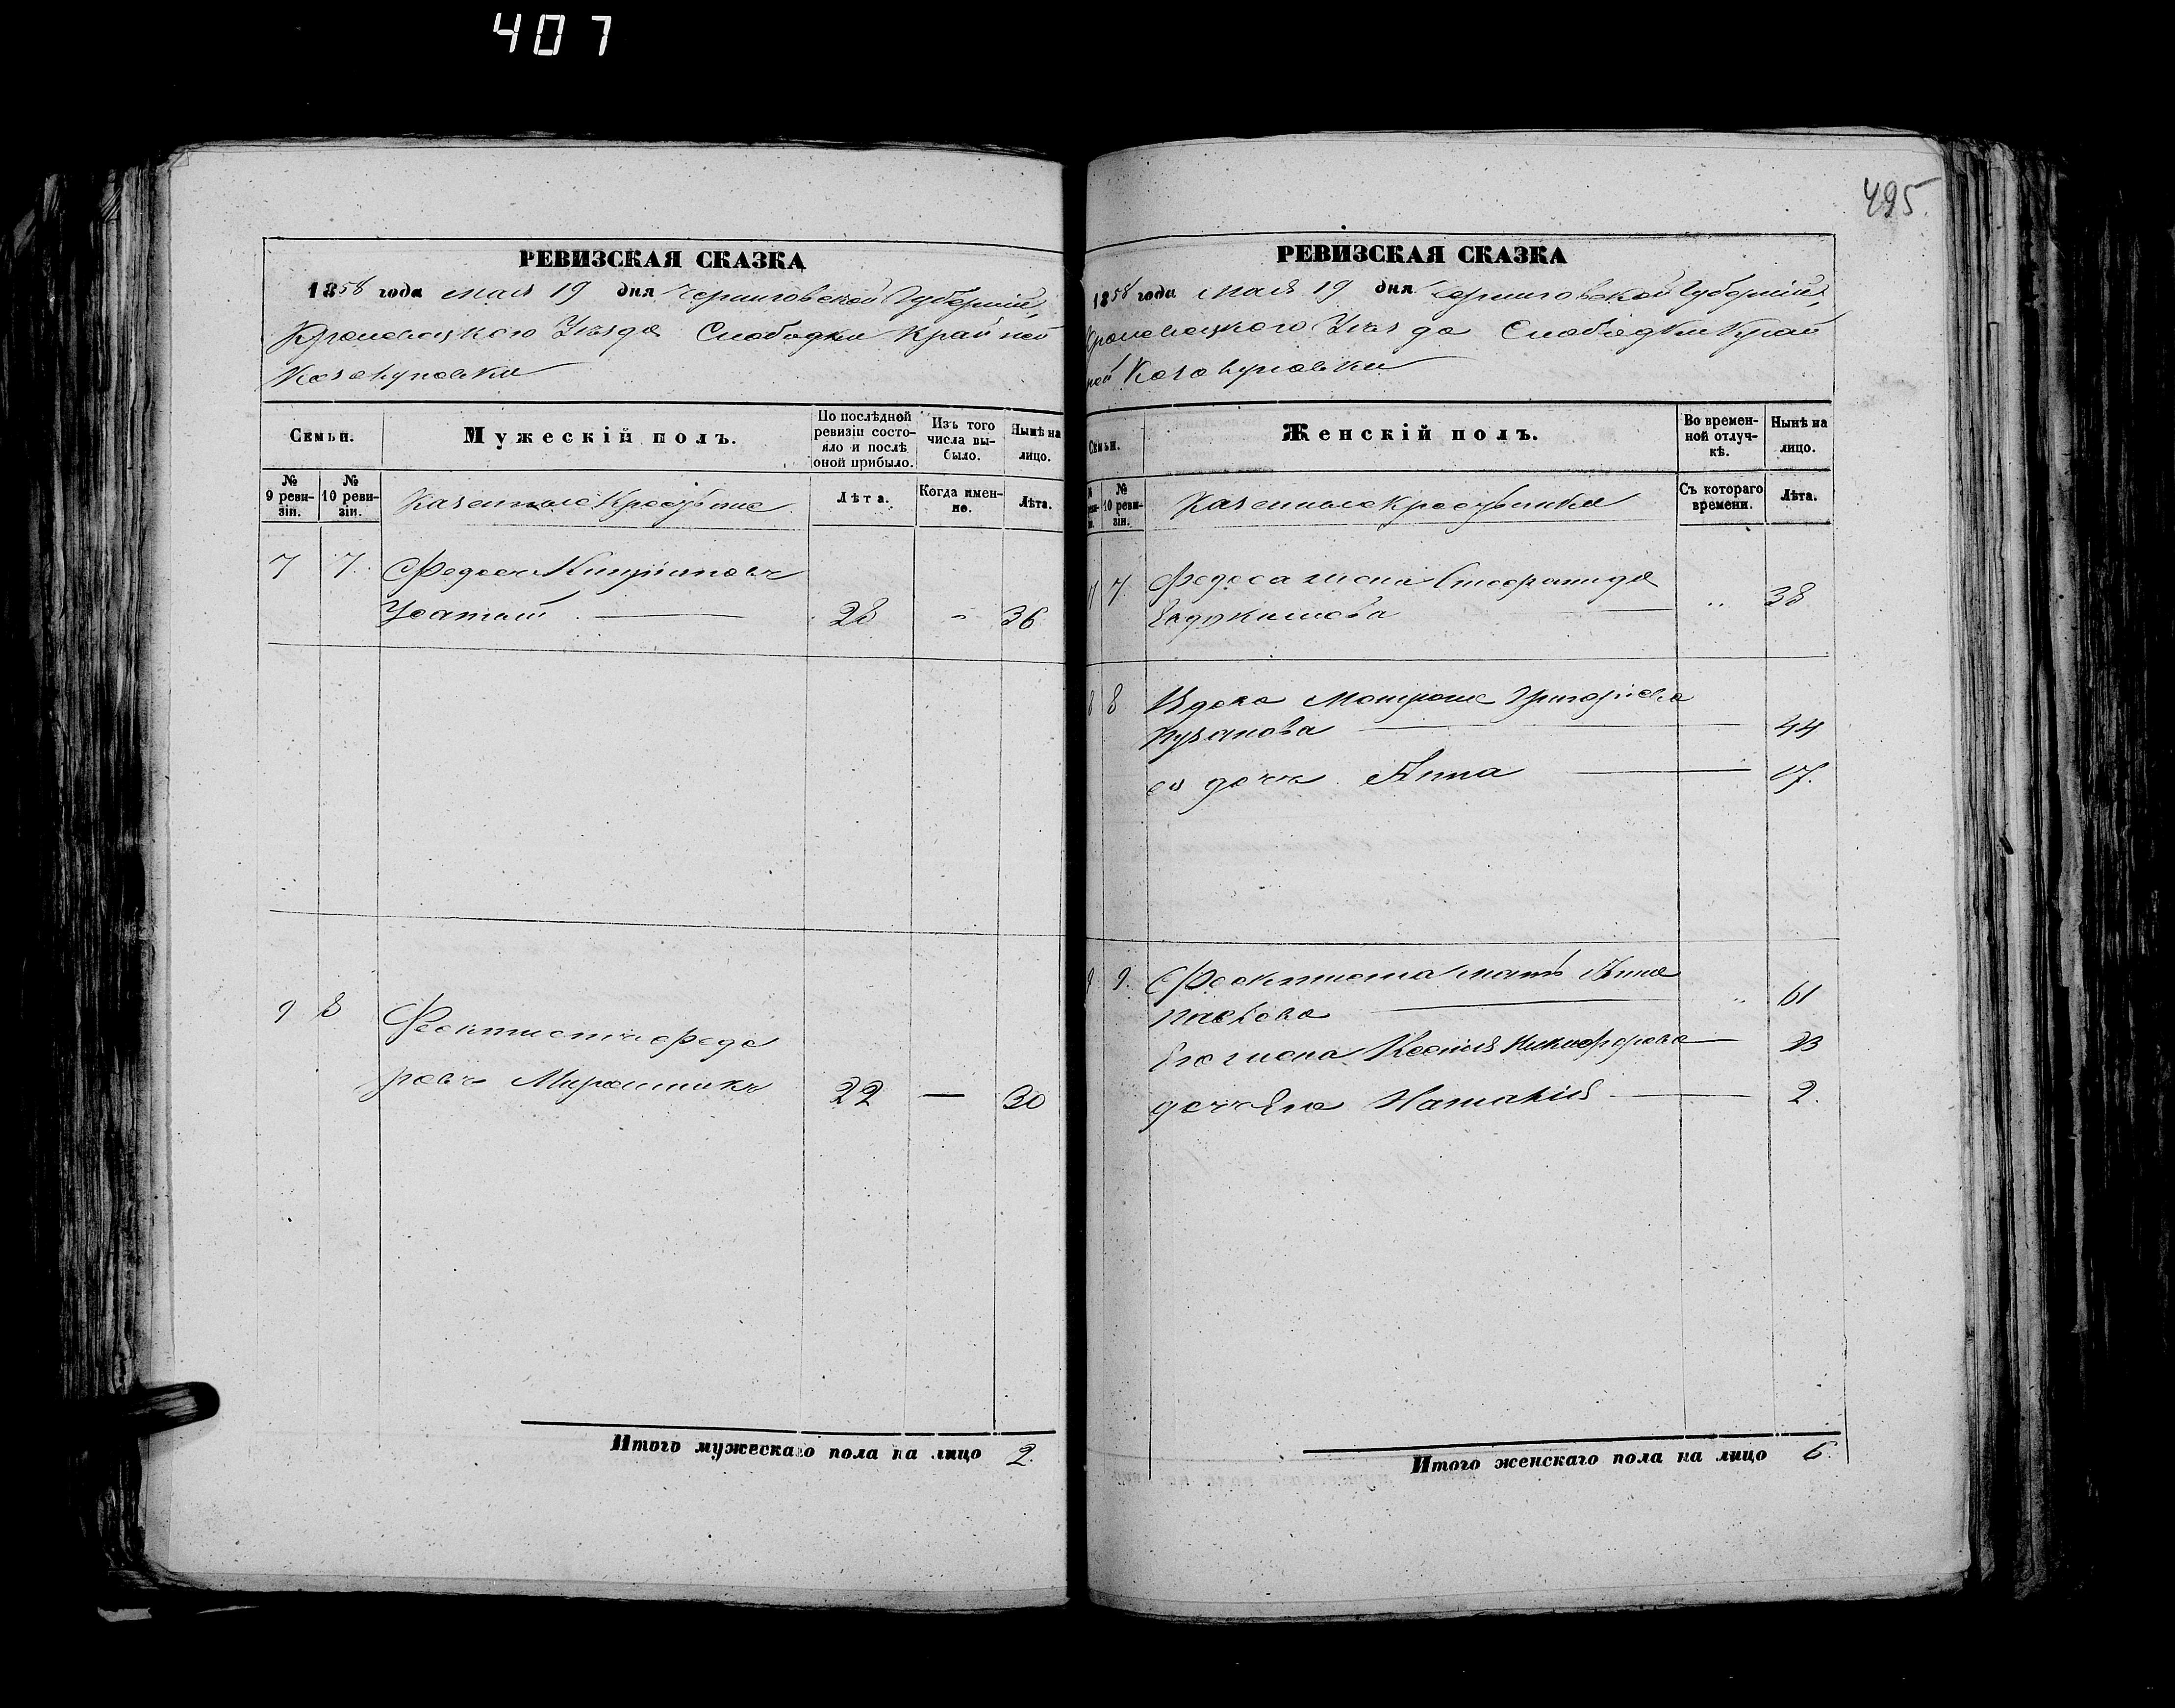 407
495
РЕВИЗСКАЯ СКАЗКА
1858 года мая 19 дня Черниговской Губерніи,
Кролевецкого Уезда Слободки Крайней
СЕМЬИ.
Мужескій полъ.
По послѣдней ревизіи состояло и послѣ оной прибыло.
Изъ того числа выбыло.
Нынѣ на лицо.
№ 9 ревизіи.
№ 10 ревизіи.
Казенные Крестьяне
Лѣта.
Когда именно.
Лѣта.
7 7. Федосъ Кипріяновъ
Усатый 28 36
9 8 Феоктистъ Федо
ровъ Мирошникъ 22 — 30
Итого мужескаго пола на лицо 2.
РЕВИЗСКАЯ СКАЗКА
1858 года мая 19 дня Черниговской Губерніи
Кролевецкого Уезда Слободки Край
ней
Семьи.
Женскій полъ.
Во временной отлучкѣ.
Нынѣ на лицо.
№ 10 ревизіи.
Казенные Крестьянки
Съ котораго времени.
Лѣта.
7 7. Федоса жена Степанида
Евдокимова 38
8 8 Вдова Матрона Григорієва
44
ее дочь Анна 17.
9 9. Феоктиста мать Анна
61
Его жена Ксенія Никифорова 23
дочь Его Наталія 2.
Итого женскаго пола на лицо 6.